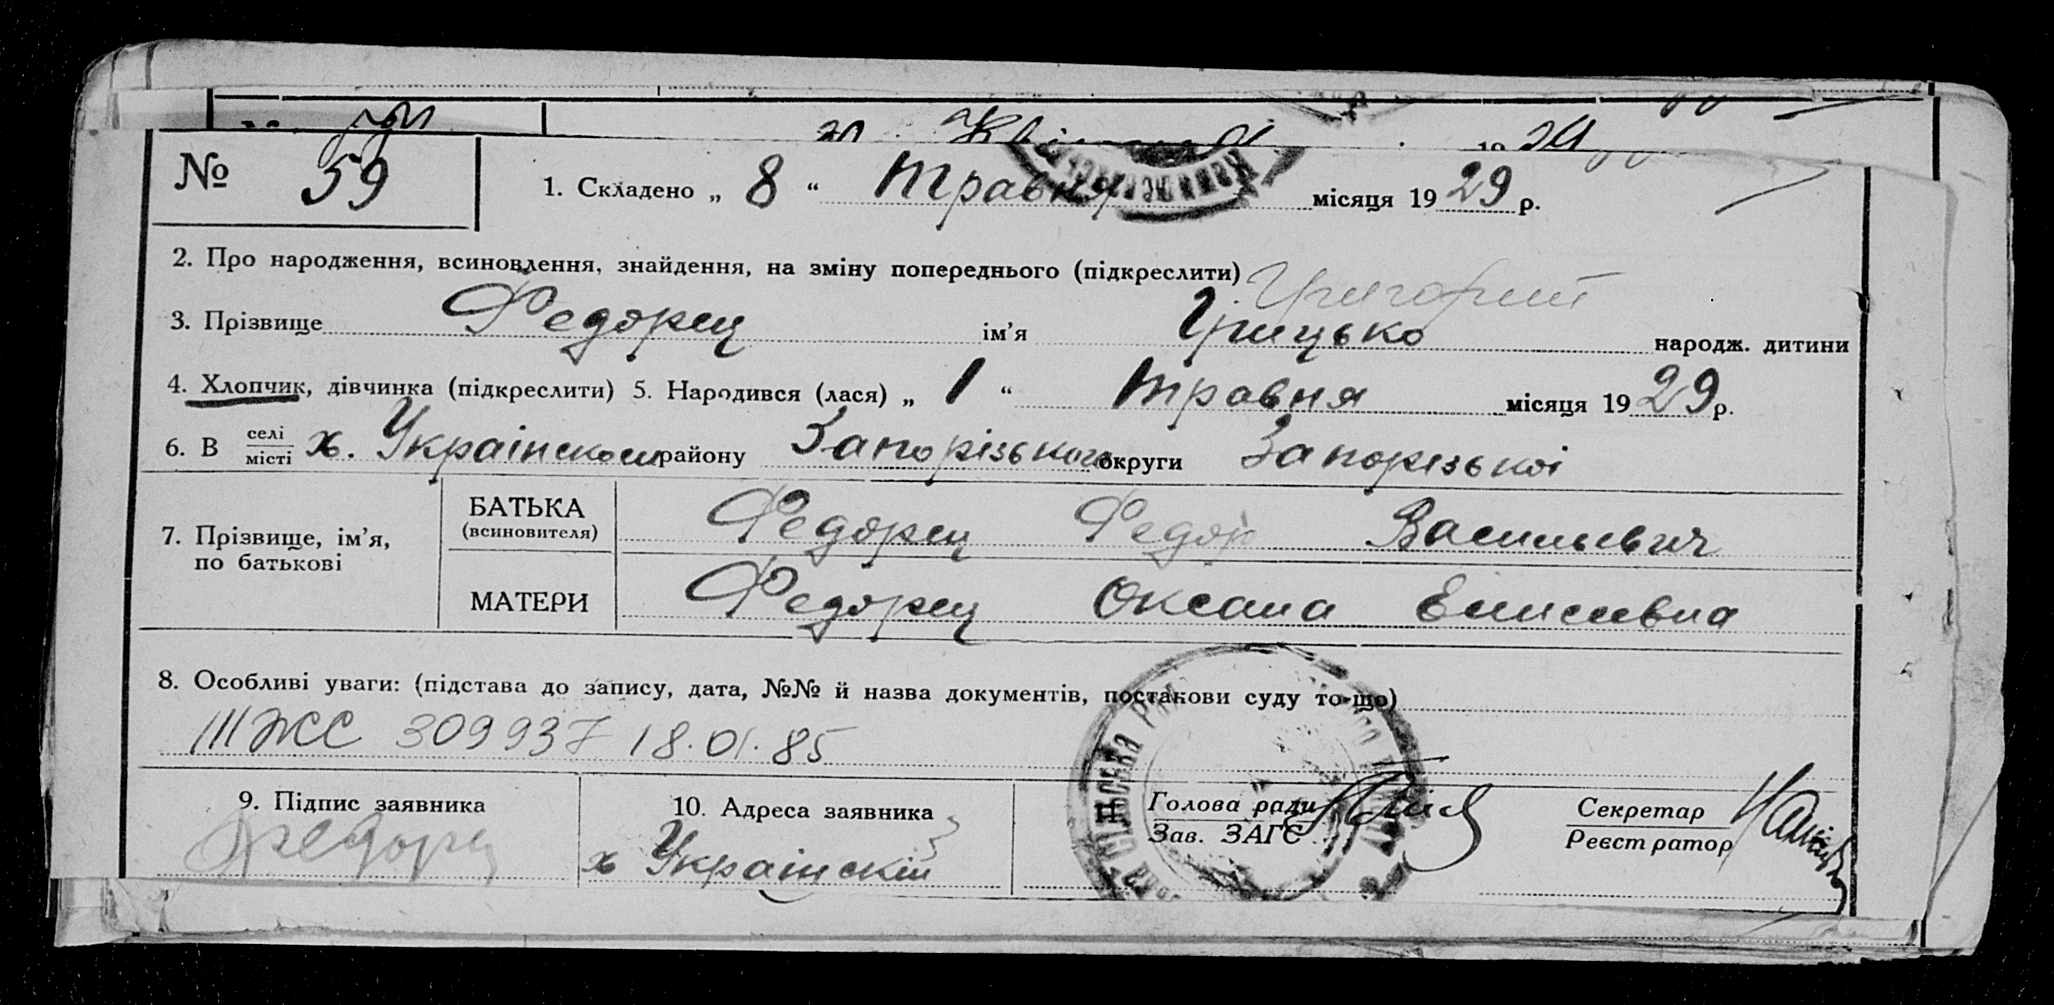 № 59
1. Складено „ 8 “ Травня місяця 1929 р.
2. Про народження, всиновлення, знайдення, на зміну попереднього (підкреслити)
Григорий
3. Прізвище Федорец ім’я Грицько народж. дитини
4. Хлопчик, дівчинка (підкреслити) 5. Народився (лася) „ 1 “ травня місяця 1929 р.
6. В селі/місті х. Украінском району Запорізького округи Запорізькоі
7. Прізвище, ім’я, по батькові
БАТЬКА (всиновителя) Федорец Федор Васильевич
МАТЕРИ Федорец Оксана
8. Особливі уваги: (підстава до запису, дата, №№ й назва документів, постанови суду то-що)
III ЖС 309937 18.01.85
9. Підпис заявника
Федорец
10. Адреса заявника
х Украінскій
Голова ради
Зав. ЗАГС
Секретар
Реєстратор